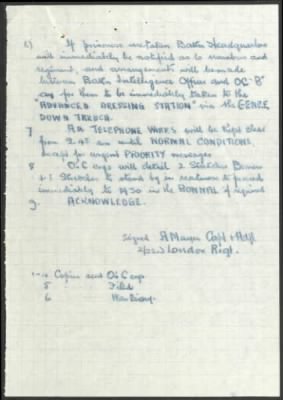 6) If prisoners are taken Battn Headquarters
will immediately be notified as to number and
regiment, and arrangements will be made
between Battn Intelligence Officer and OC "B"
coy for them to be immediately taken to the
"ADVANCED DRESSING STATION" via the
DOWN TRENCH.
7 All TELEPHONE WORKS will be kept clear
from 2.45 am until NORMAL CONDITIONS,
except for urgent PRIORITY messages
8 OC coys will detail 2 Stretcher Bearers
+ 1 Stretcher to stand by in readiness to proceed
immediately to in the if required
9. ACKNOWLEDGE.
Signed A Mayer Capt + Adjt
2/22nd London Regt.
1-4 Copies and OC coys
5 Filed
6 War Diary.